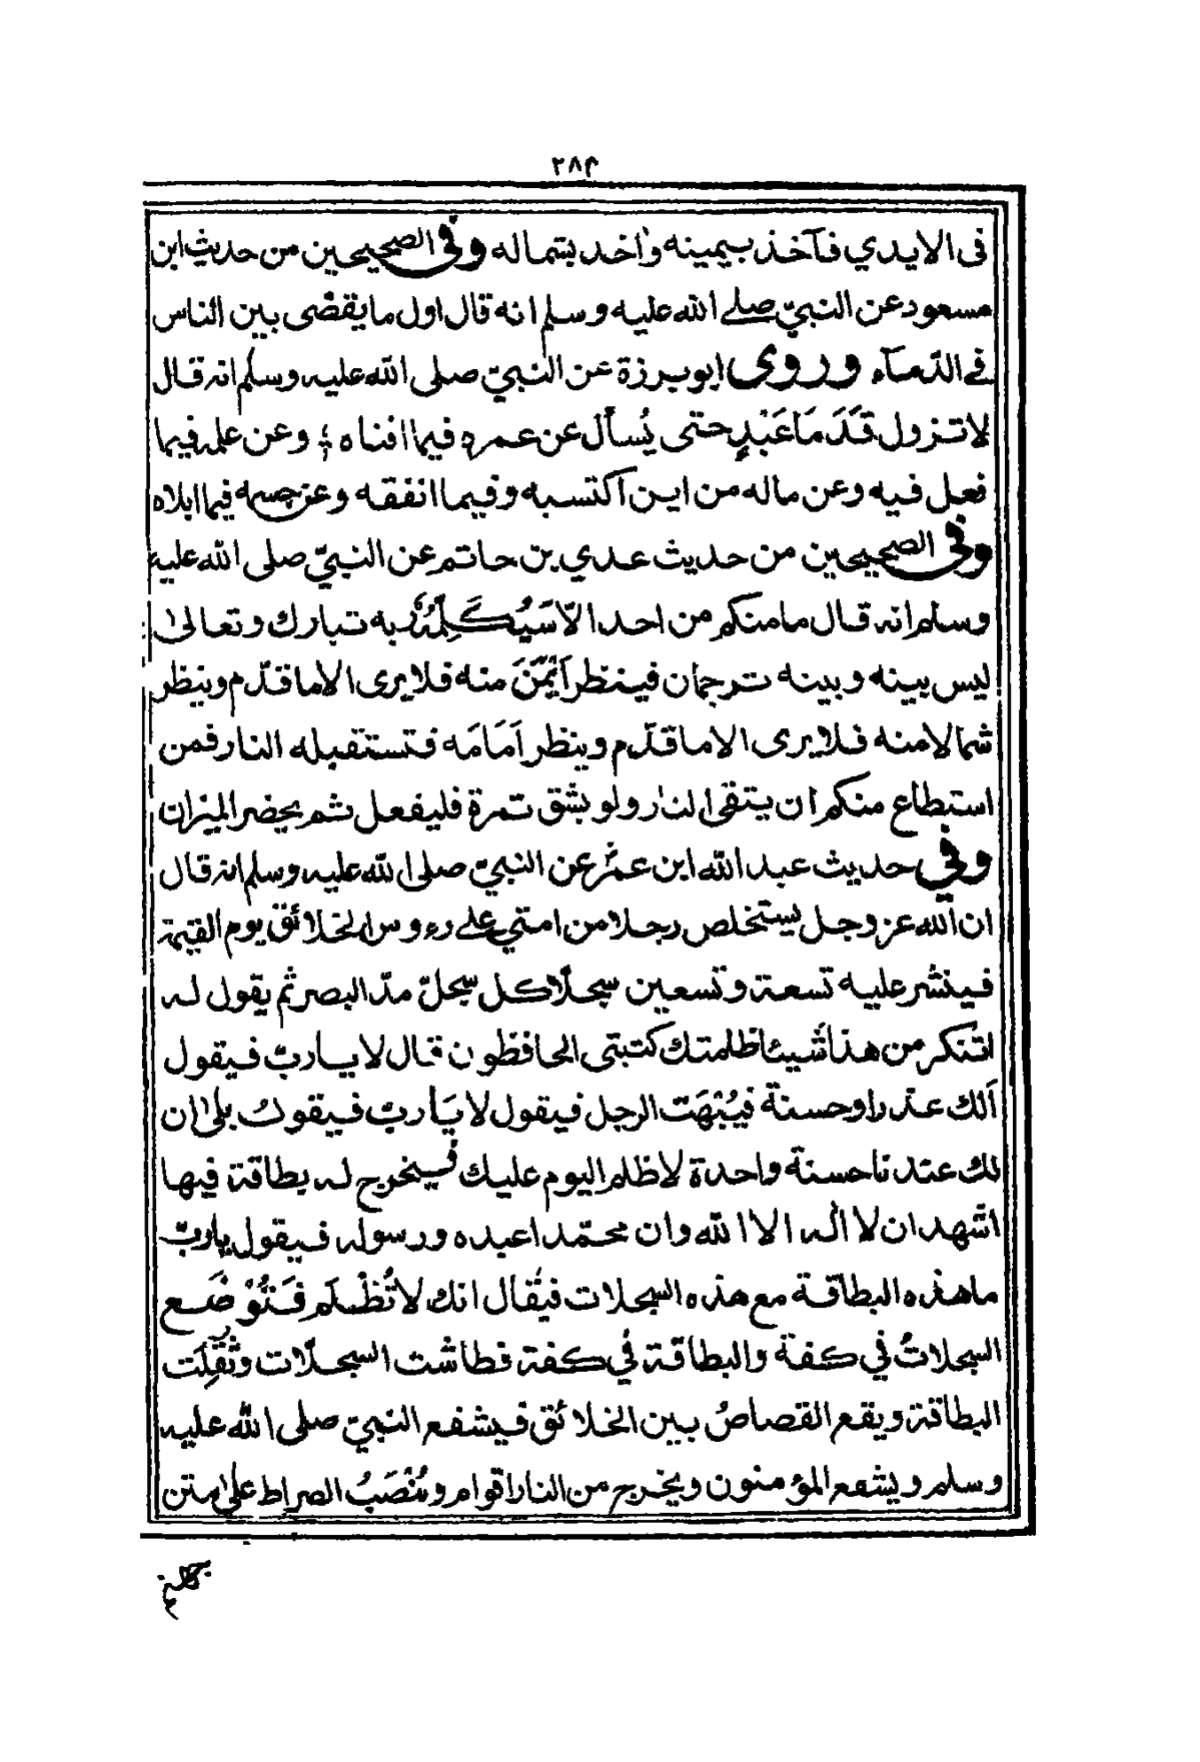 ٢٨٣
فى الايدي فآخذ بيمينه وٰاخذ بشماله وفي الصحيحين من حديث ابن
مسعود عن النبيّ صلے الله عليه وسلم انه قال اول ما يقضى بين الناس
فے الدّمآء وروى ابو برزة عن النبيّ صلى الله عليه وسلم انه قال
لا تزول قَدَمَا عَبْدٍ حتى يُسأل عن عمره فيما افناه ؛ وعن علمه فيما
فعل فيه وعن ماله من اين اكتسبه وفيما انفقه وعن جسمه فيما ابلاه
وفى الصحيحين من حديث عدي بن حاتم عن النبيّ صلى الله عليه
وسلم انه قال ما منكم من احد الّا سَيُكَلِّمُهُ ربه تبارك وتعالىٰ
ليس بينه وبينه ترجمان فينظر اَيْمَنَ منه فلا يرى الا ما قدّم وينظر
شمالا منه فلا يرى الا ما قدّم وينظر اَمَامَه فتستقبله النار فمن
استطاع منكم ان يتقى النار ولو بشق تمرة فليفعل ثم يحضر الميزان
وفي حديث عبد الله ابن عمر عن النبيّ صلى الله عليه وسلم انه قال
ان الله عز وجل يستخلص رجلا من امتي على رءوس الخلائق يوم القيمة
فينشر عليه تسعة وتسعين سجلّا كل سجلّ مدّ البصر ثم يقول له
اتنكر من هذا شيئا ظلمتك كتبتى الحافظون قال لا يا ربّ فيقول
اَلك عذر او حسنة فيُبْهَت الرجل فيقول لا يَا ربّ فيقول بلىٰ ان
لك عندنا حسنة واحدة لا ظلم اليوم عليك فيخرج له بطاقة فيها
اشهد ان لا اله الا الله وان محمّدا عبده ورسوله فيقول يا ربّ
ما هذه البطاقة مع هذه السجلات فيُقال انك لا تُظْلَم فَتُوْضَع
السجلاتُ في كفة والبطاقة في كفة فطاشت السجلّات وثَقُلَت
البطاقة ويقع القصاصُ بين الخلائق فيشفع النبيّ صلى الله عليه
وسلم ويشفع المؤمنون ويخرج من النار اقوام ويُنْصَبُ الصراط على متن
جهنم